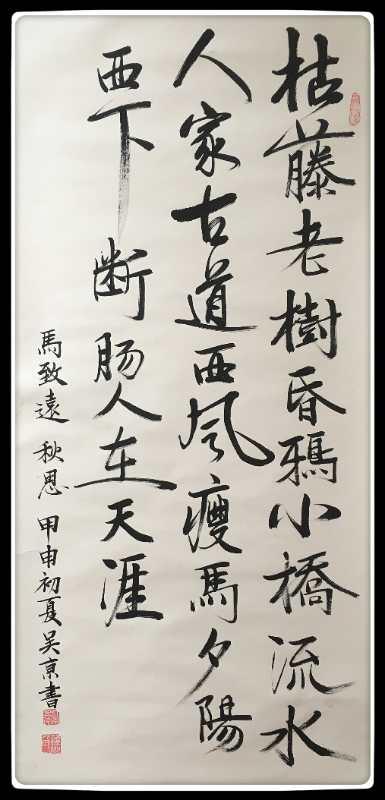 枯藤老樹昏鴉小橋流水
人家古道西风瘦馬夕陽
西下斷肠人在天涯
馬致遠 秋思 甲申初夏吴京書